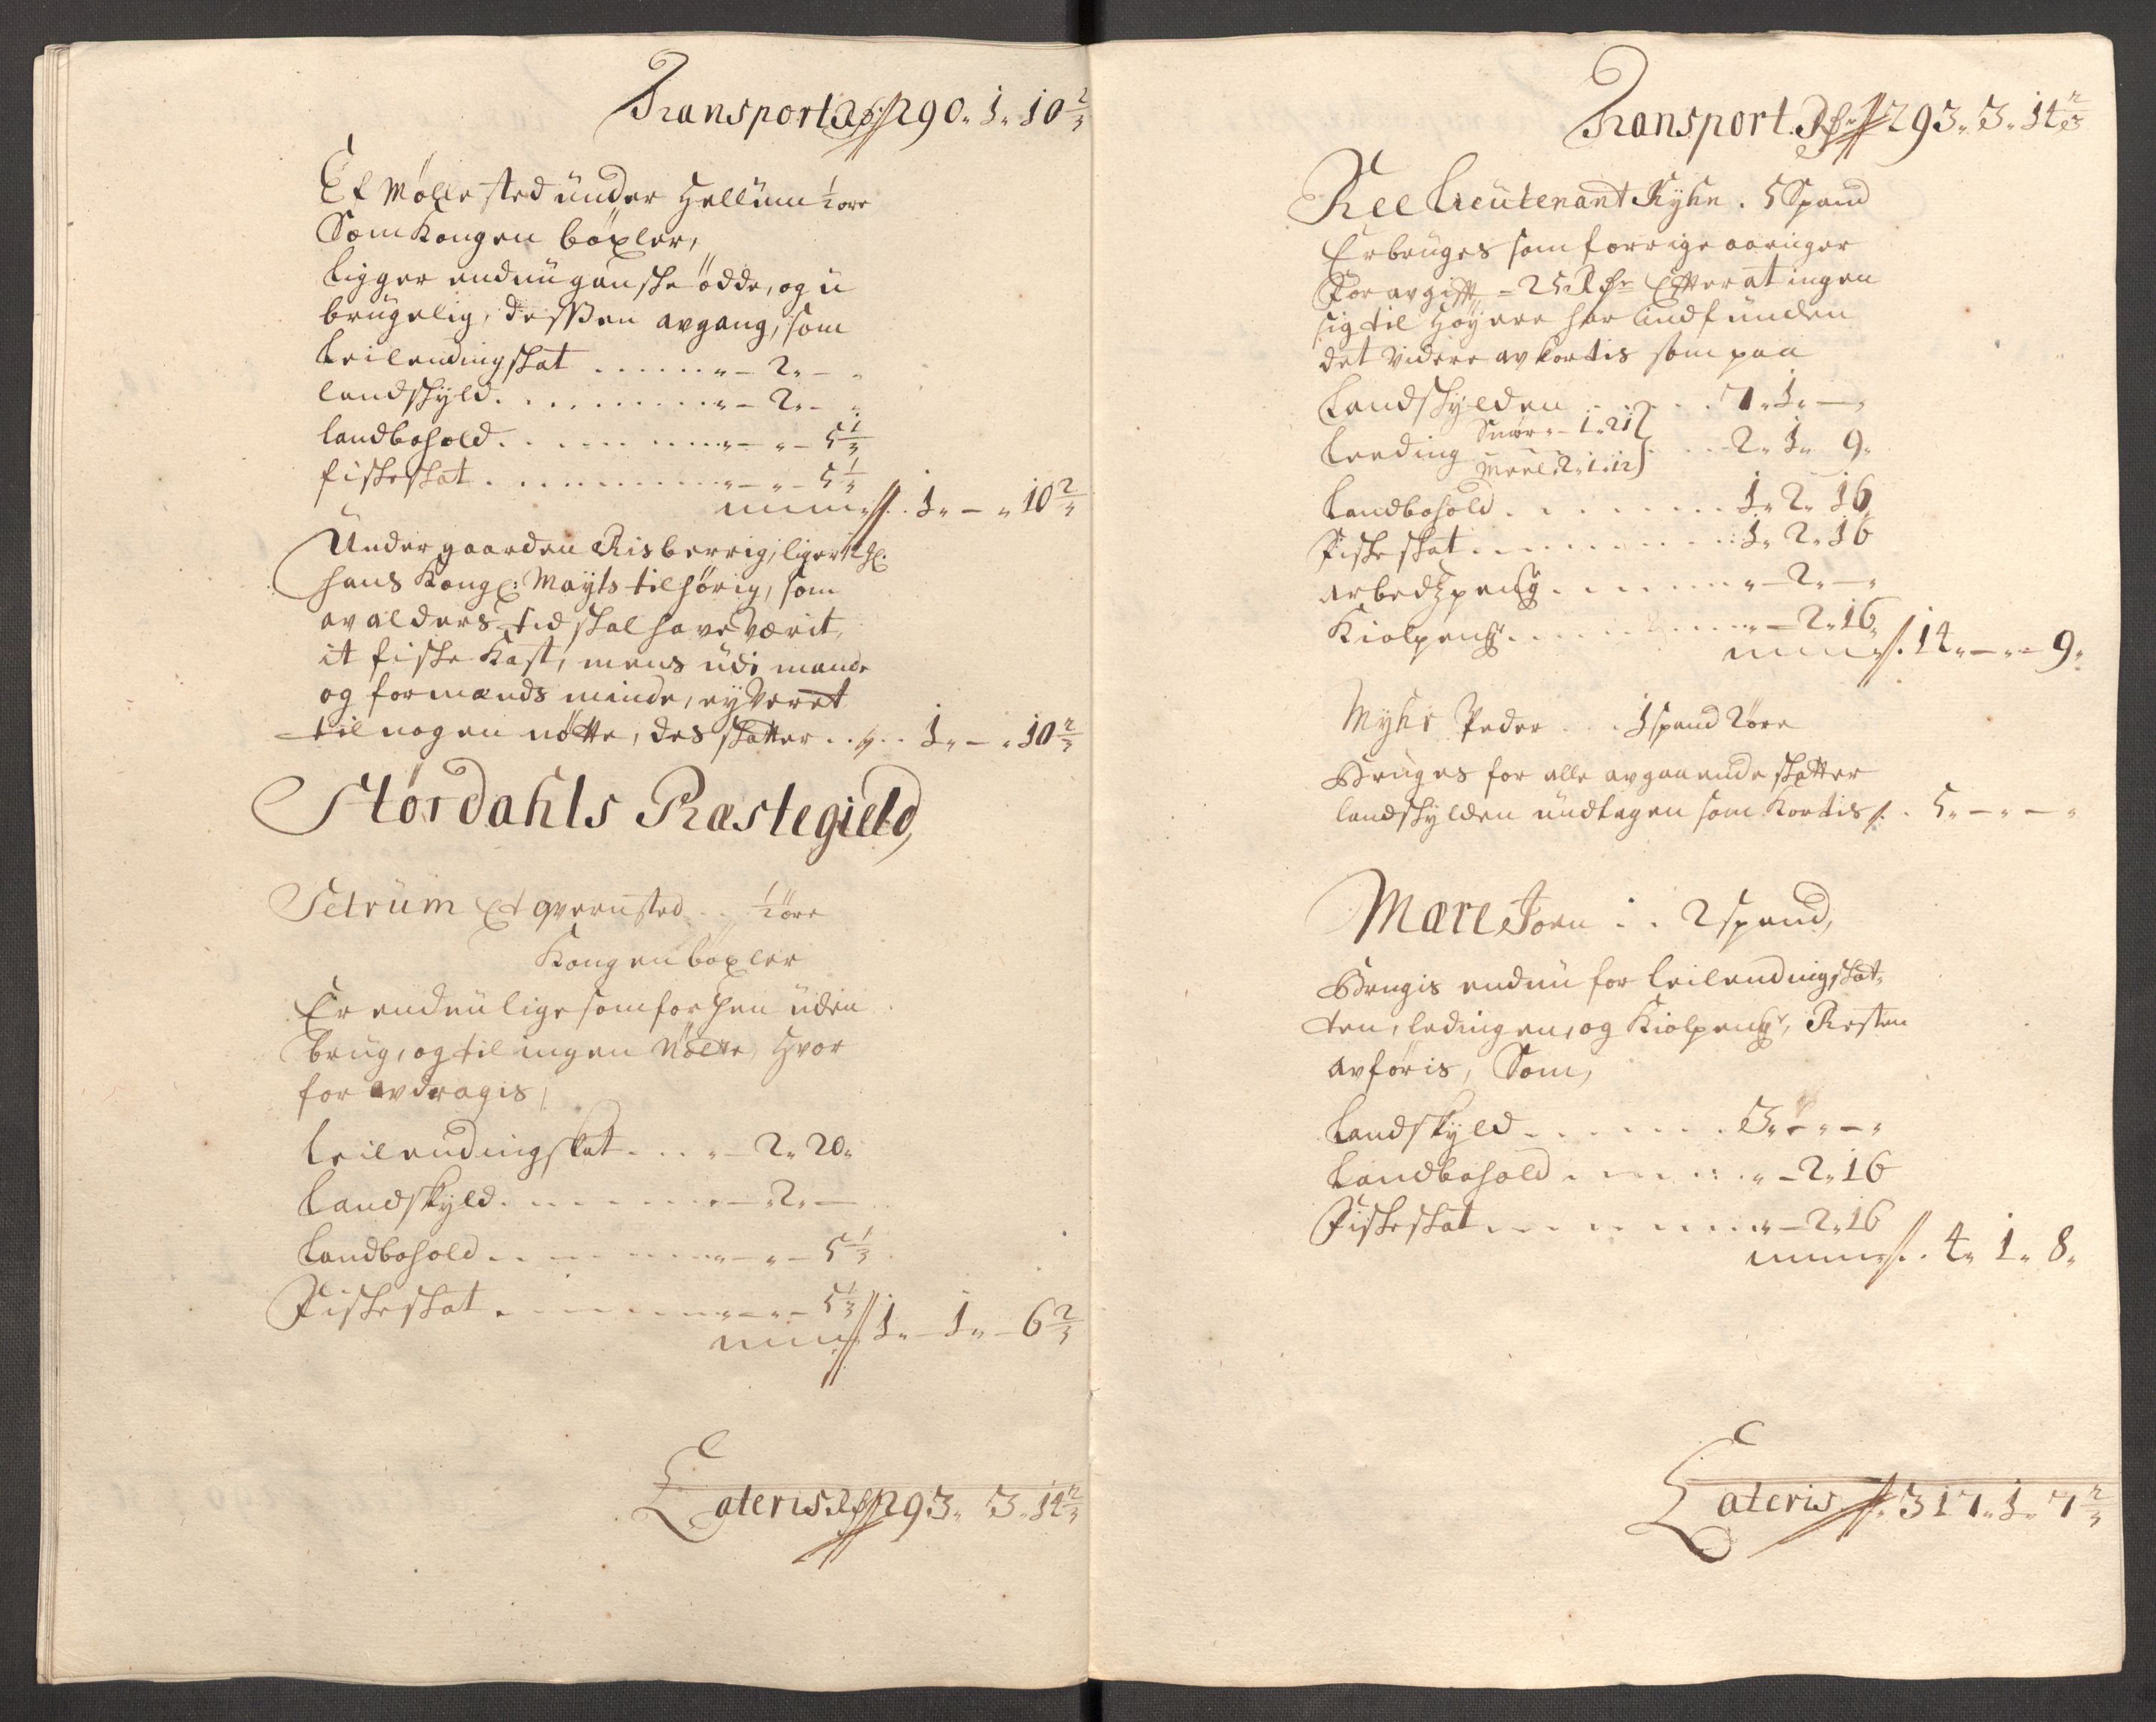 Transport Rdr 290. 1. 10 2/3
Et Mølle sted under Hellum 1/2 øre
Som Kongen böxler,
ligger endnu ganske ödde, og u
brugelig, dessen avgang, som
Leilendingskat . . . . . . „ – 2„ – „
landskyld . . . . . . . . „ – 2„ – „
landbohold . . . . . . . „ – „ – 5 1/3
fiskeskat . . . . . . . . „ – „ – 5 1/3
1„ – „ 10 2/3
Under gaarden Risberrig, liger
hans Kongl: Mayts tilhörig, som
av alders tid skal have værit,
it fiske Kast, mens udi mande
og formænds minde, ey veret
til nogen nötte, des skatter . . 1„ – „ 10 2/3
Størdahls Præstegield,
Setrum Et qvernsted . . 1/2 öre
Kongen böxler
Er endnu lige som forhen uden
brug, og til ingen Nötte, Hvor
for avdragis,
Leilendingskat . . . „ – 2„ 20„
Landskyld . . . . . . „ – 2„ –
Landbohold . . . . . . „ – „ – 5 1/3
Fiskeskat . . . . . . „ – „ – 5 1/3
1„ – 1„ – 6 2/3
Lateris Rdr 293„ 3„ 14 2/3
Transport. Rdr 293„ 3„ 14 2/3
Ree Lieutenant Kyhn . 5 Spand
Erbruges som forrige aaringer
For avgifft – 25 Rdr Efter at ingen
sig til Höyere har indfunden
det videre avkortis som paa
Landskylden . . . . . 7„ 1„ –„
Smør „ – 1„ 21
Leeding . . . 2„ 1„ 9„
Meel „ 2„ 1„ 12
Landbohold . . . . . . . 1„ 2„ 16
Fiskeskat . . . . . . . . 1„ 2„ 16
Arbedzpeng . . . . . . „ – 2„ – „
Kiolpeng . . . . . . „ – 2„ 16„
14„ – „ – 9„
Myhr Peder . . 1 spand 2 øre
Bruges for alle avgaaende skatter
landskylden undtagen som Kortis . 5„ – „ – „
Mære Joen . . 2 spand,
Brugis endnu for Leilendingskat-
ten, ledingen, og Kiolpeng, Resten
avföris, Som,
Landskyld . . . . . . 3„ – „ – „
Landbohold . . . . . . „ – 2„ 16
Fiskeskat . . . . . . „ – 2„ 16
4„ 1„ 8„
Lateris 317„ 1„ 7 2/3